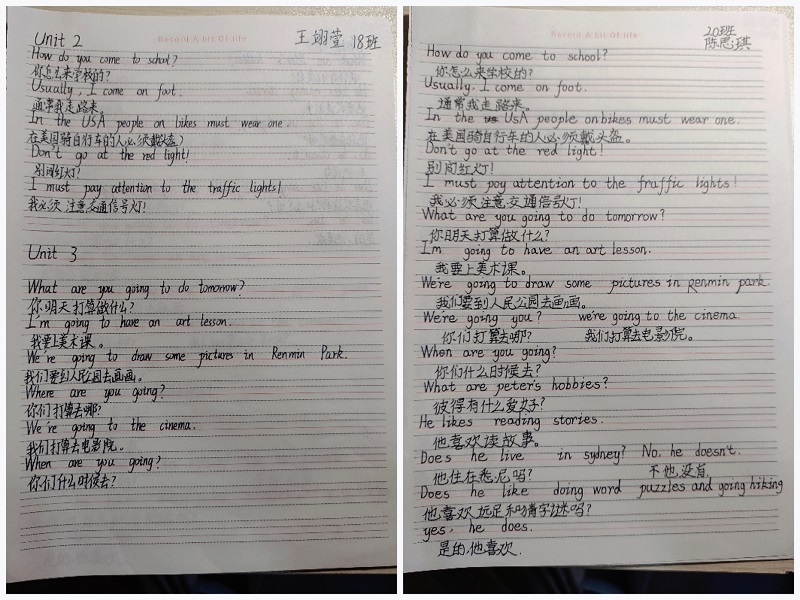 Record A bit Of life
Unit 2
王翊萱 18班
How do you come to school?
你怎么来学校的?
Usually, I come on foot.
通常我走路来。
In the USA people on bikes must wear one.
在美国骑自行车的人必须戴头盔?
Don't go at the red light!
别闯红灯!
I must pay attention to the traffic lights!
我必须注意交通信号灯!
Unit 3
What are you going to do tomorrow?
你明天打算做什么?
I'm going to have an art lesson.
我要上美术课。
We're going to draw some pictures in Renmin Park.
我们要到人民公园去画画。
Where are you going?
你们打算去哪?
We're going to the cinema.
我们打算去电影院。
When are you going?
你们什么时候去?
Record A bit Of life
20班
陈思琪
How do you come to school?
你怎么来学校的?
Usually, I come on foot.
通常我走路来。
In the USA people on bikes must wear one.
在美国骑自行车的人必须戴头盔。
Don't go at the red light!
别闯红灯!
I must poy attention to the fraffic lights!
我必须注意交通信号灯!
What are you going to do tomorrow?
你明天打算做什么?
Im going to have an art lesson.
我要上美术课。
We're going to draw some pictures in Renmin park.
我们要到人民公园去画画。
We're going you? we're going to the cinema.
你们打算去哪? 我们打算去电影院。
When are you going?
你们什么时候去?
What are peter's hobbies?
彼得有什么爱好?
He likes reading stories.
他喜欢读故事。
Does he live in sydney? No, he doesn't.
他住在悉尼吗? 不他,没有.
Does he like doing word puzzles and going hiking
他喜欢远足和猜字谜吗?
yes, he does.
是的,他喜欢.